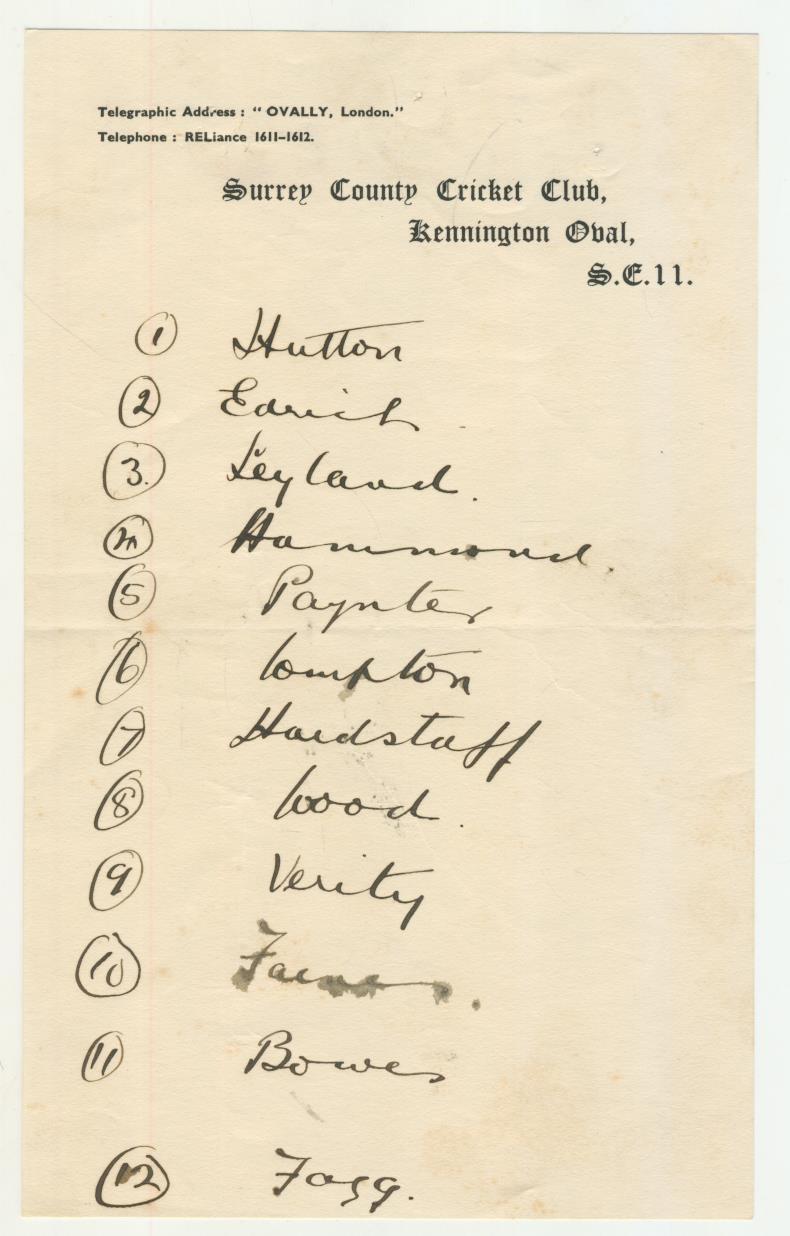 Telegraphic Address : “ OVALLY, London.”
Telephone : RELiance 1611–1612.
Surrey County Cricket Club,
Kennington Oval,
S.E.11.
1 Hutton
2 Edrich.
3. Leyland.
4 Hammond.
5 Paynter
6 Compton
7 Hardstaff
8 Wood.
9 Verity
10 Farnes.
11 Bowes
12 Fagg.